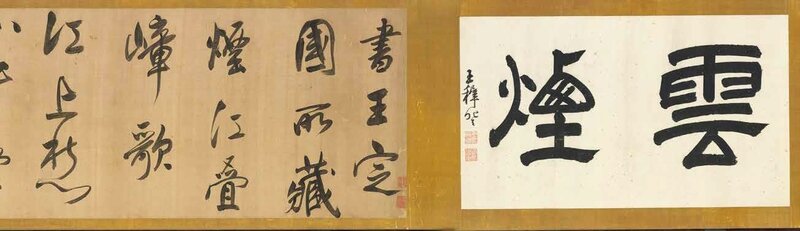 雲煙
王穉登
書王定
國所藏
煙江疊
嶂歌
江上愁心